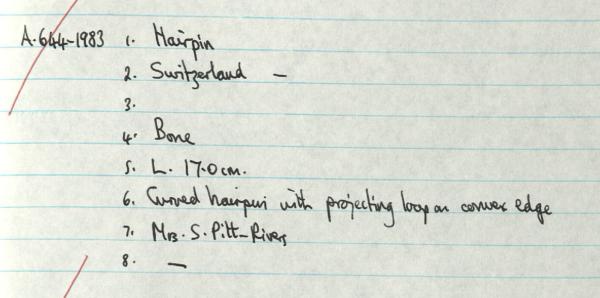 A.644-1983 1. Hairpin
2. Switzerland —
3.
4. Bone
5. L. 17.0cm.
6. Curved hairpin with projecting loop on convex edge
7. Mrs. S. Pitt-Rivers
8. —